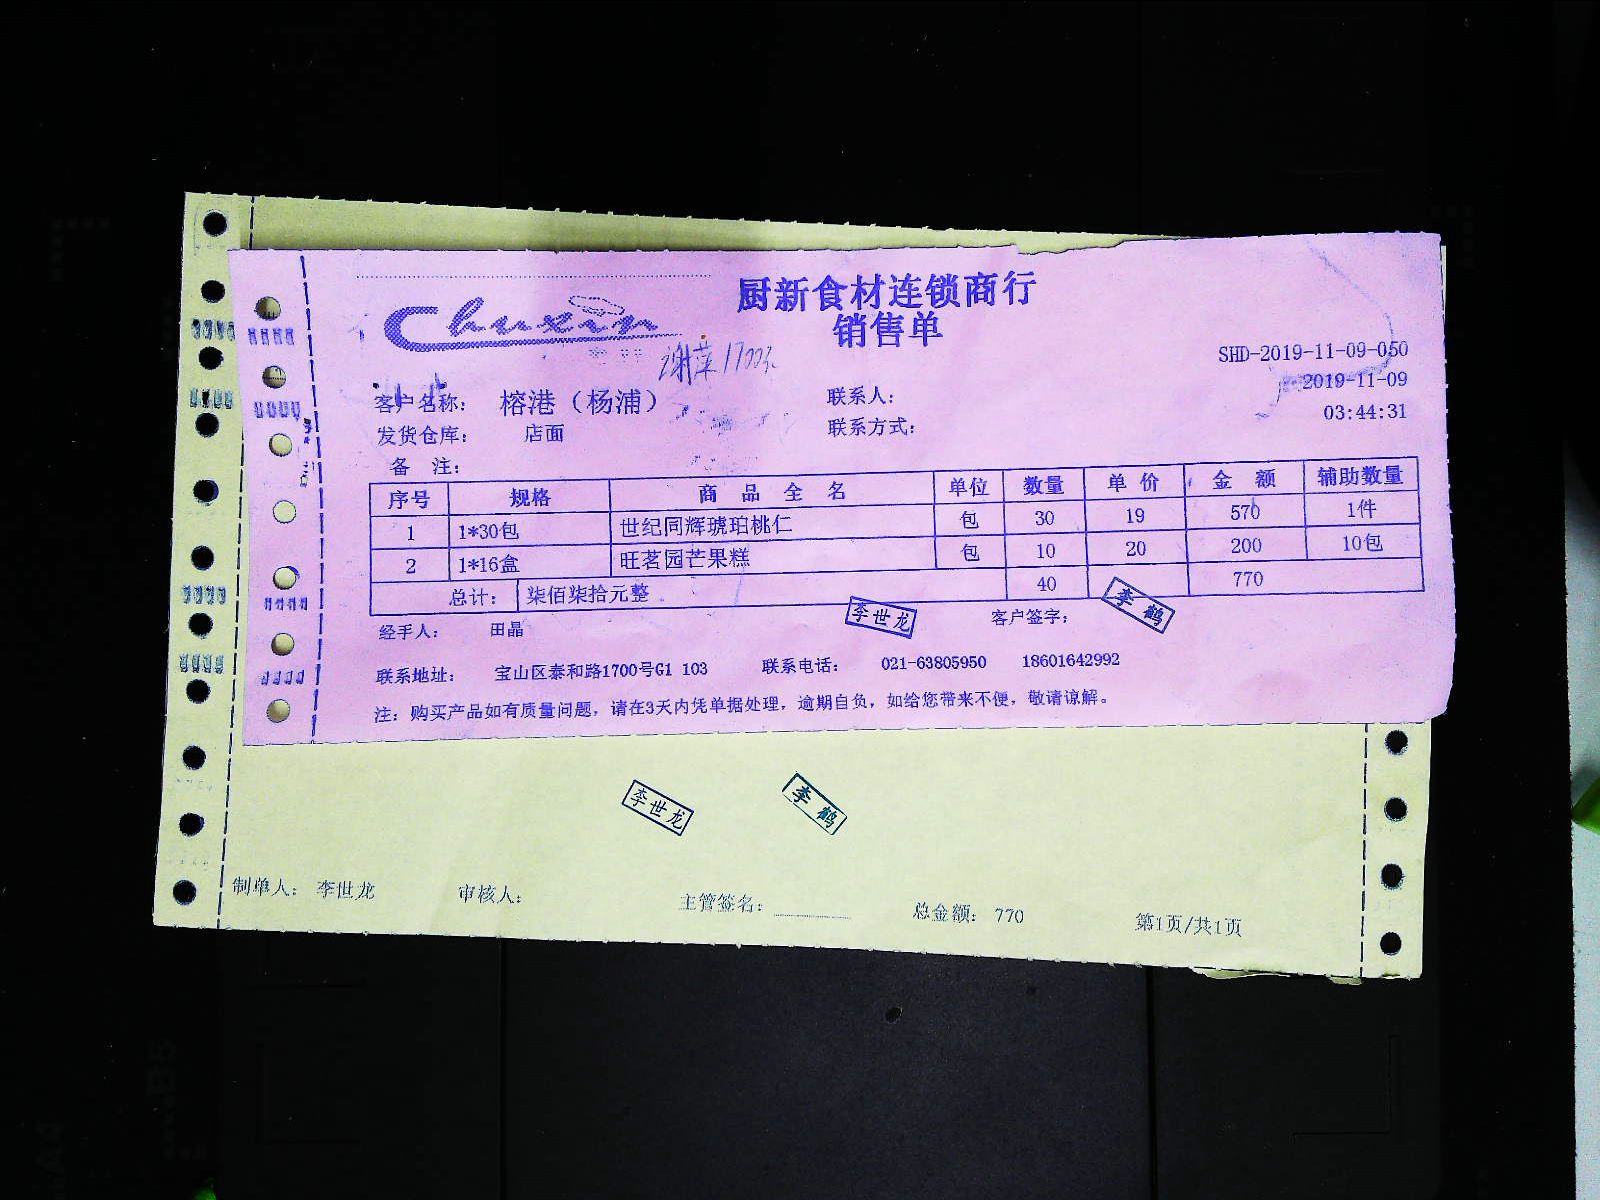 厨新食材连锁商行
Chuxin
销售单
谢萍1700元
SHD-2019-11-09-050
客户名称: 榕港（杨浦） 联系人: 2019-11-09
发货仓库: 店面 联系方式: 03:44:31
备 注:
序号 规格 商 品 全 名 单位 数量 单 价 金 额 辅助数量
1 1*30包 世纪同辉琥珀桃仁 包 30 19 570 1件
2 1*16盒 旺茗园芒果糕 包 10 20 200 10包
总计: 柒佰柒拾元整 40 770
经手人: 田晶 李世龙 客户签字: 李鹤
联系地址: 宝山区泰和路1700号G1 103 联系电话: 021-63805950 18601642992
注: 购买产品如有质量问题, 请在3天内凭单据处理, 逾期自负, 如给您带来不便, 敬请谅解。
李世龙 李鹤
制单人: 李世龙 审核人: 主管签名: 总金额: 770 第1页/共1页